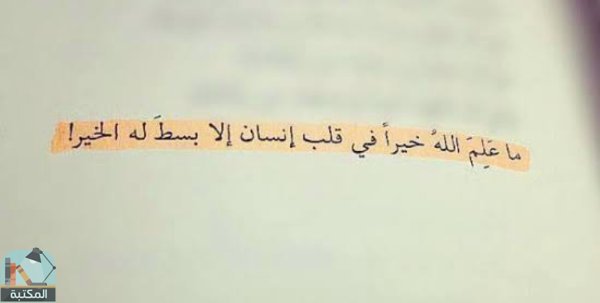 ما عَلِمَ اللهُ خيراً في قلب إنسان إلا بسطَ له الخير!
المكتبة